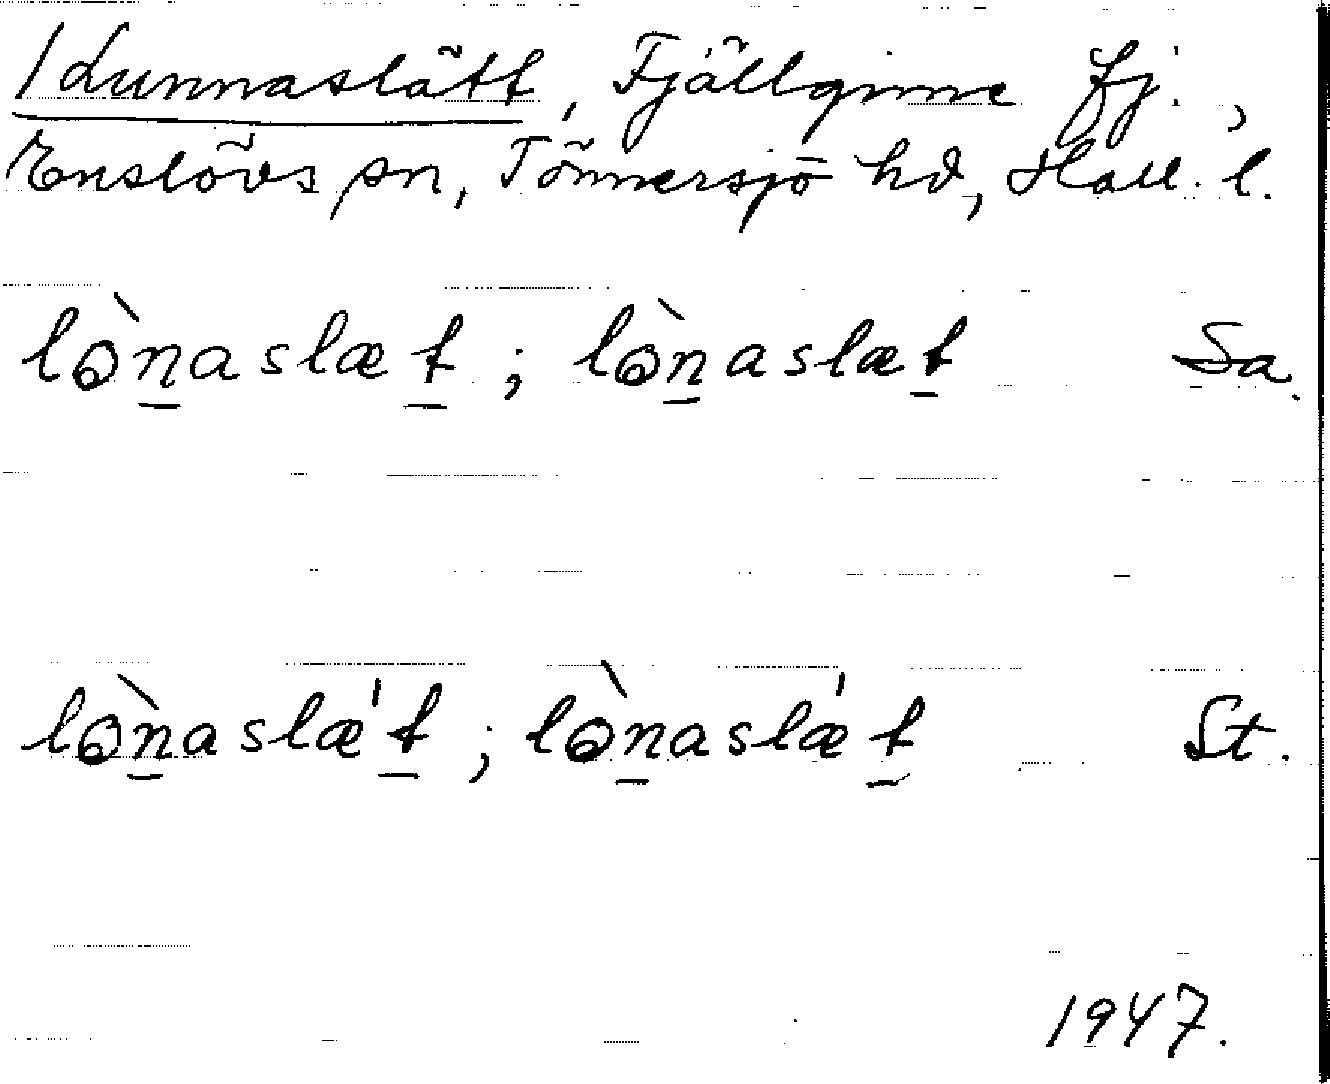 /Lunnaslätt, Fjällginne fj.,
Enslövs sn, Tönnersjö hd, Hall. l.
lòn̲aslæt̲ ; lòn̲aslæt̲ Sa.
lòn̲aslæ't̲ ; lòn̲aslæ't̲ St.
1947.